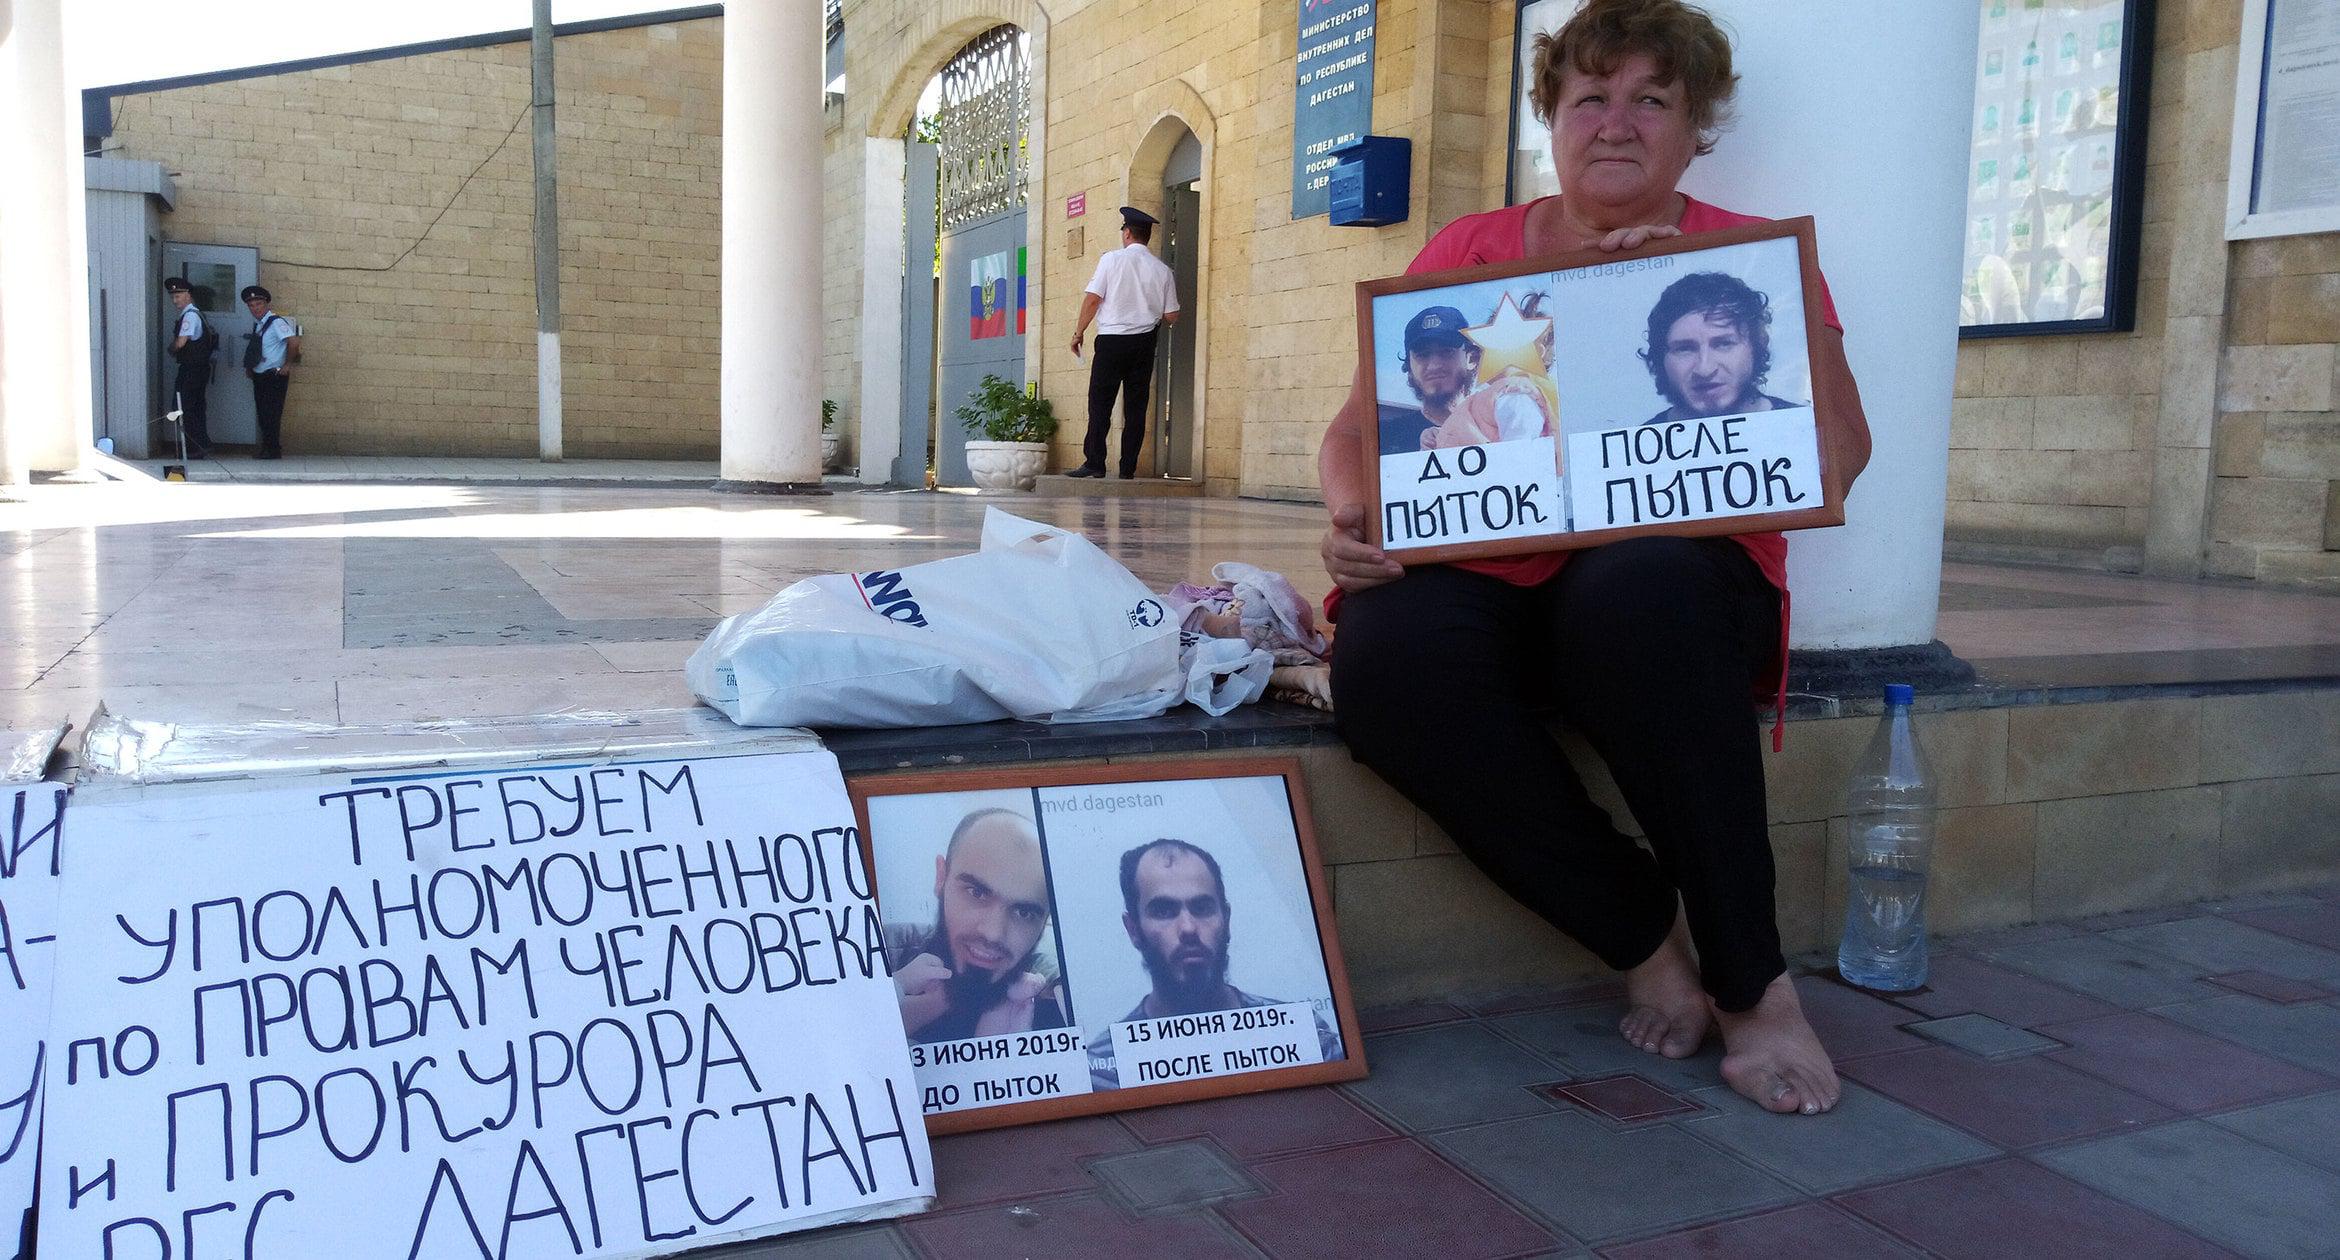 МИНИСТЕРСТВО
ВНУТРЕННИХ ДЕЛ
ПО РЕСПУБЛИКЕ
ДАГЕСТАН
ОТДЕЛ МВД
РОССИ
г. ДЕР
ПОЧТА
mvd.dagestan
ДО
ПЫТОК
ПОСЛЕ
ПЫТОК
ТРЕБУЕМ
УПОЛНОМОЧЕННОГО
ПО ПРАВАМ ЧЕЛОВЕКА
и ПРОКУРОРА
РЕС ДАГЕСТАН
mvd.dagestan
3 ИЮНЯ 2019г.
ДО ПЫТОК
МВД
15 ИЮНЯ 2019г.
ПОСЛЕ ПЫТОК